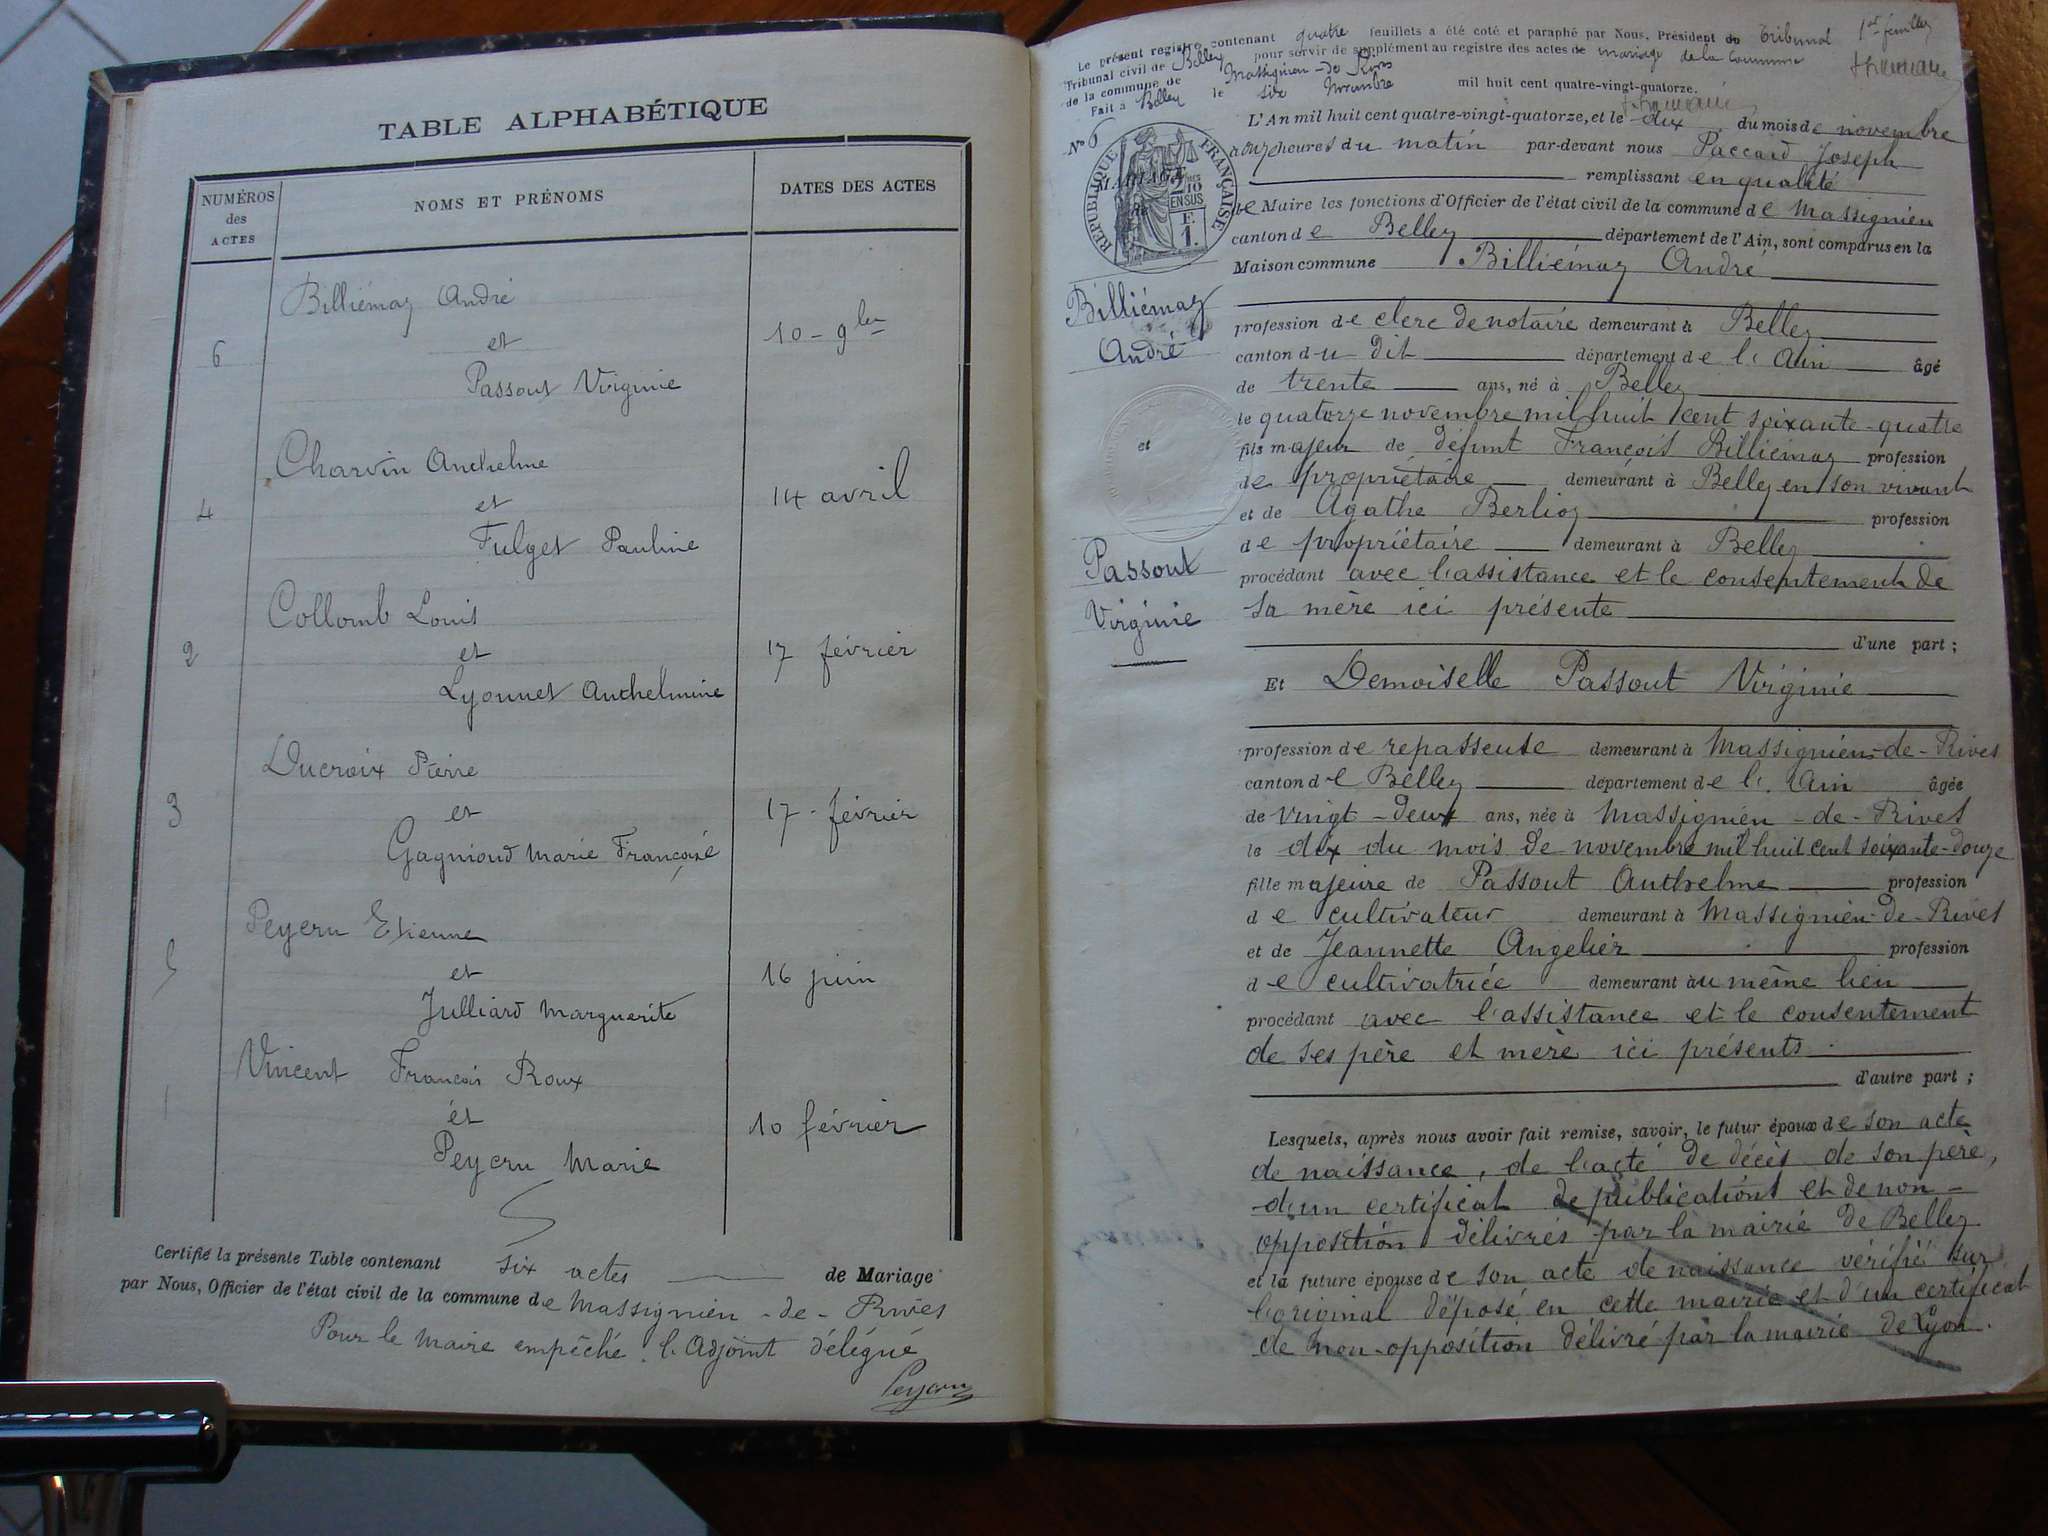 TABLE ALPHABÉTIQUE
NUMÉROS des ACTES
NOMS ET PRÉNOMS
DATES DES ACTES
Billiémaz André
6 et 10 - 9bre
Passout Virginie
Charvin Anthelme
4 et 14 avril
Fulget Pauline
Collomb Louis
2 et 17 février
Lyonnet Anthelmine
Ducroix Pierre
3 et 17 - février
Gagnioud Marie Françoise
Peyeru Etienne
5 et 16 juin
Julliard Marguerite
Vincent François Roux
1 et 10 février
Peyeru Marie
Certifié la présente Table contenant six actes de Mariage
par Nous, Officier de l'état civil de la commune de Massignieu-de-Rives
Pour le Maire empêché, l'Adjoint délégué
Peyeru
Le présent registre contenant quatre feuillets a été coté et paraphé par Nous, Président du Tribunal
Tribunal civil de Belley pour servir de supplément au registre des actes de mariage de la commune
de la commune de Massignieu-de-Rives
Fait à Belley le six novembre mil huit cent quatre-vingt-quatorze.
1er feuillet
No 6
RÉPUBLIQUE FRANÇAISE
MARIAGE
2/10 EN SUS
F. 1.
Billiémaz
André
et
Passout
Virginie
L'An mil huit cent quatre-vingt-quatorze, et le dix du mois de novembre
à onze heures du matin par-devant nous Paccard Joseph
remplissant en qualité
de Maire les fonctions d'Officier de l'état civil de la commune de Massignieu
canton de Belley département de l'Ain, sont comparus en la
Maison commune Billiémaz André
profession de clerc de notaire demeurant à Belley
canton du dit département de l'Ain âgé
de trente ans, né à Belley
le quatorze novembre mil huit cent soixante-quatre
fils majeur de défunt François Billiémaz profession
de propriétaire demeurant à Belley en son vivant
et de Agathe Berlioz profession
de propriétaire demeurant à Belley
procédant avec l'assistance et le consentement de
sa mère ici présente
d'une part ;
Et Demoiselle Passout Virginie
profession de repasseuse demeurant à Massignieu-de-Rives
canton de Belley département de l'Ain âgée
de vingt-deux ans, née à Massignieu-de-Rives
le dix du mois de novembre mil huit cent soixante-douze
fille majeure de Passout Anthelme profession
de cultivateur demeurant à Massignieu-de-Rives
et de Jeannette Angelier profession
de cultivatrice demeurant au même lieu
procédant avec l'assistance et le consentement
de ses père et mère ici présents.
d'autre part ;
Lesquels, après nous avoir fait remise, savoir, le futur époux de son acte
de naissance, de l'acte de décès de son père,
d'un certificat de publications et de non-
opposition délivrés par la mairie de Belley
et la future épouse de son acte de naissance vérifié sur
l'original déposé en cette mairie et d'un certificat
de non-opposition délivré par la mairie de Lyon.